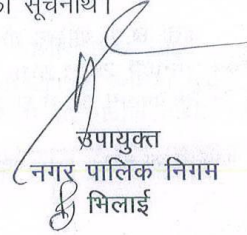 सूचनार्थ।
उपायुक्त
नगर पालिक निगम
भिलाई